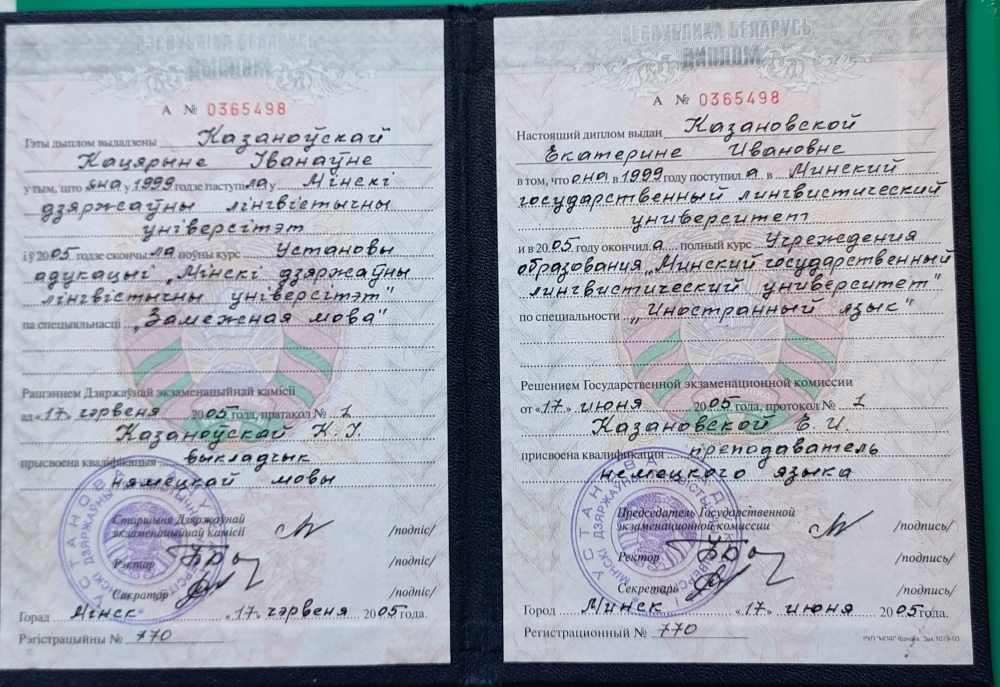 РЭСПУБЛІКА БЕЛАРУСЬ
ДЫПЛОМ
А № 0365498
Гэты дыплом выдадзены Казаноўскай
Кацярыне Іванаўне
у тым, што яна у 1999 годзе паступіла у Мінскі
дзяржаўны лінгвістычны
універсітэт
і ў 2005 годзе скончыла поўны курс Установы
адукацыі „Мінскі дзяржаўны
лінгвістычны універсітэт"
па спецыяльнасці „Замежная мова"
Рашэннем Дзяржаўнай экзаменацыйнай камісіі
ад «17» чэрвеня 2005 года, пратакол № 1
Казаноўскай К. І.
прысвоена кваліфікацыя выкладчык
нямецкай мовы
Старшыня Дзяржаўнай
экзаменацыйнай камісіі /подпіс/
Рэктар /подпіс/
Сакратар /подпіс/
Горад Мінск «17» чэрвеня 2005 года.
Рэгістрацыйны № 770
РЕСПУБЛИКА БЕЛАРУСЬ
ДИПЛОМ
А № 0365498
Настоящий диплом выдан Казановской
Екатерине Ивановне
в том, что она в 1999 году поступила в Минский
государственный лингвистический
университет
и в 2005 году окончила полный курс Учреждения
образования „Минский государственный
лингвистический университет"
по специальности „Иностранный язык"
Решением Государственной экзаменационной комиссии
от «17» июня 2005 года, протокол № 1
Казановской Е. И.
присвоена квалификация преподаватель
немецкого языка
Председатель Государственной
экзаменационной комиссии /подпись/
Ректор /подпись/
Секретарь /подпись/
Город Минск «17» июня 2005 года.
Регистрационный № 770